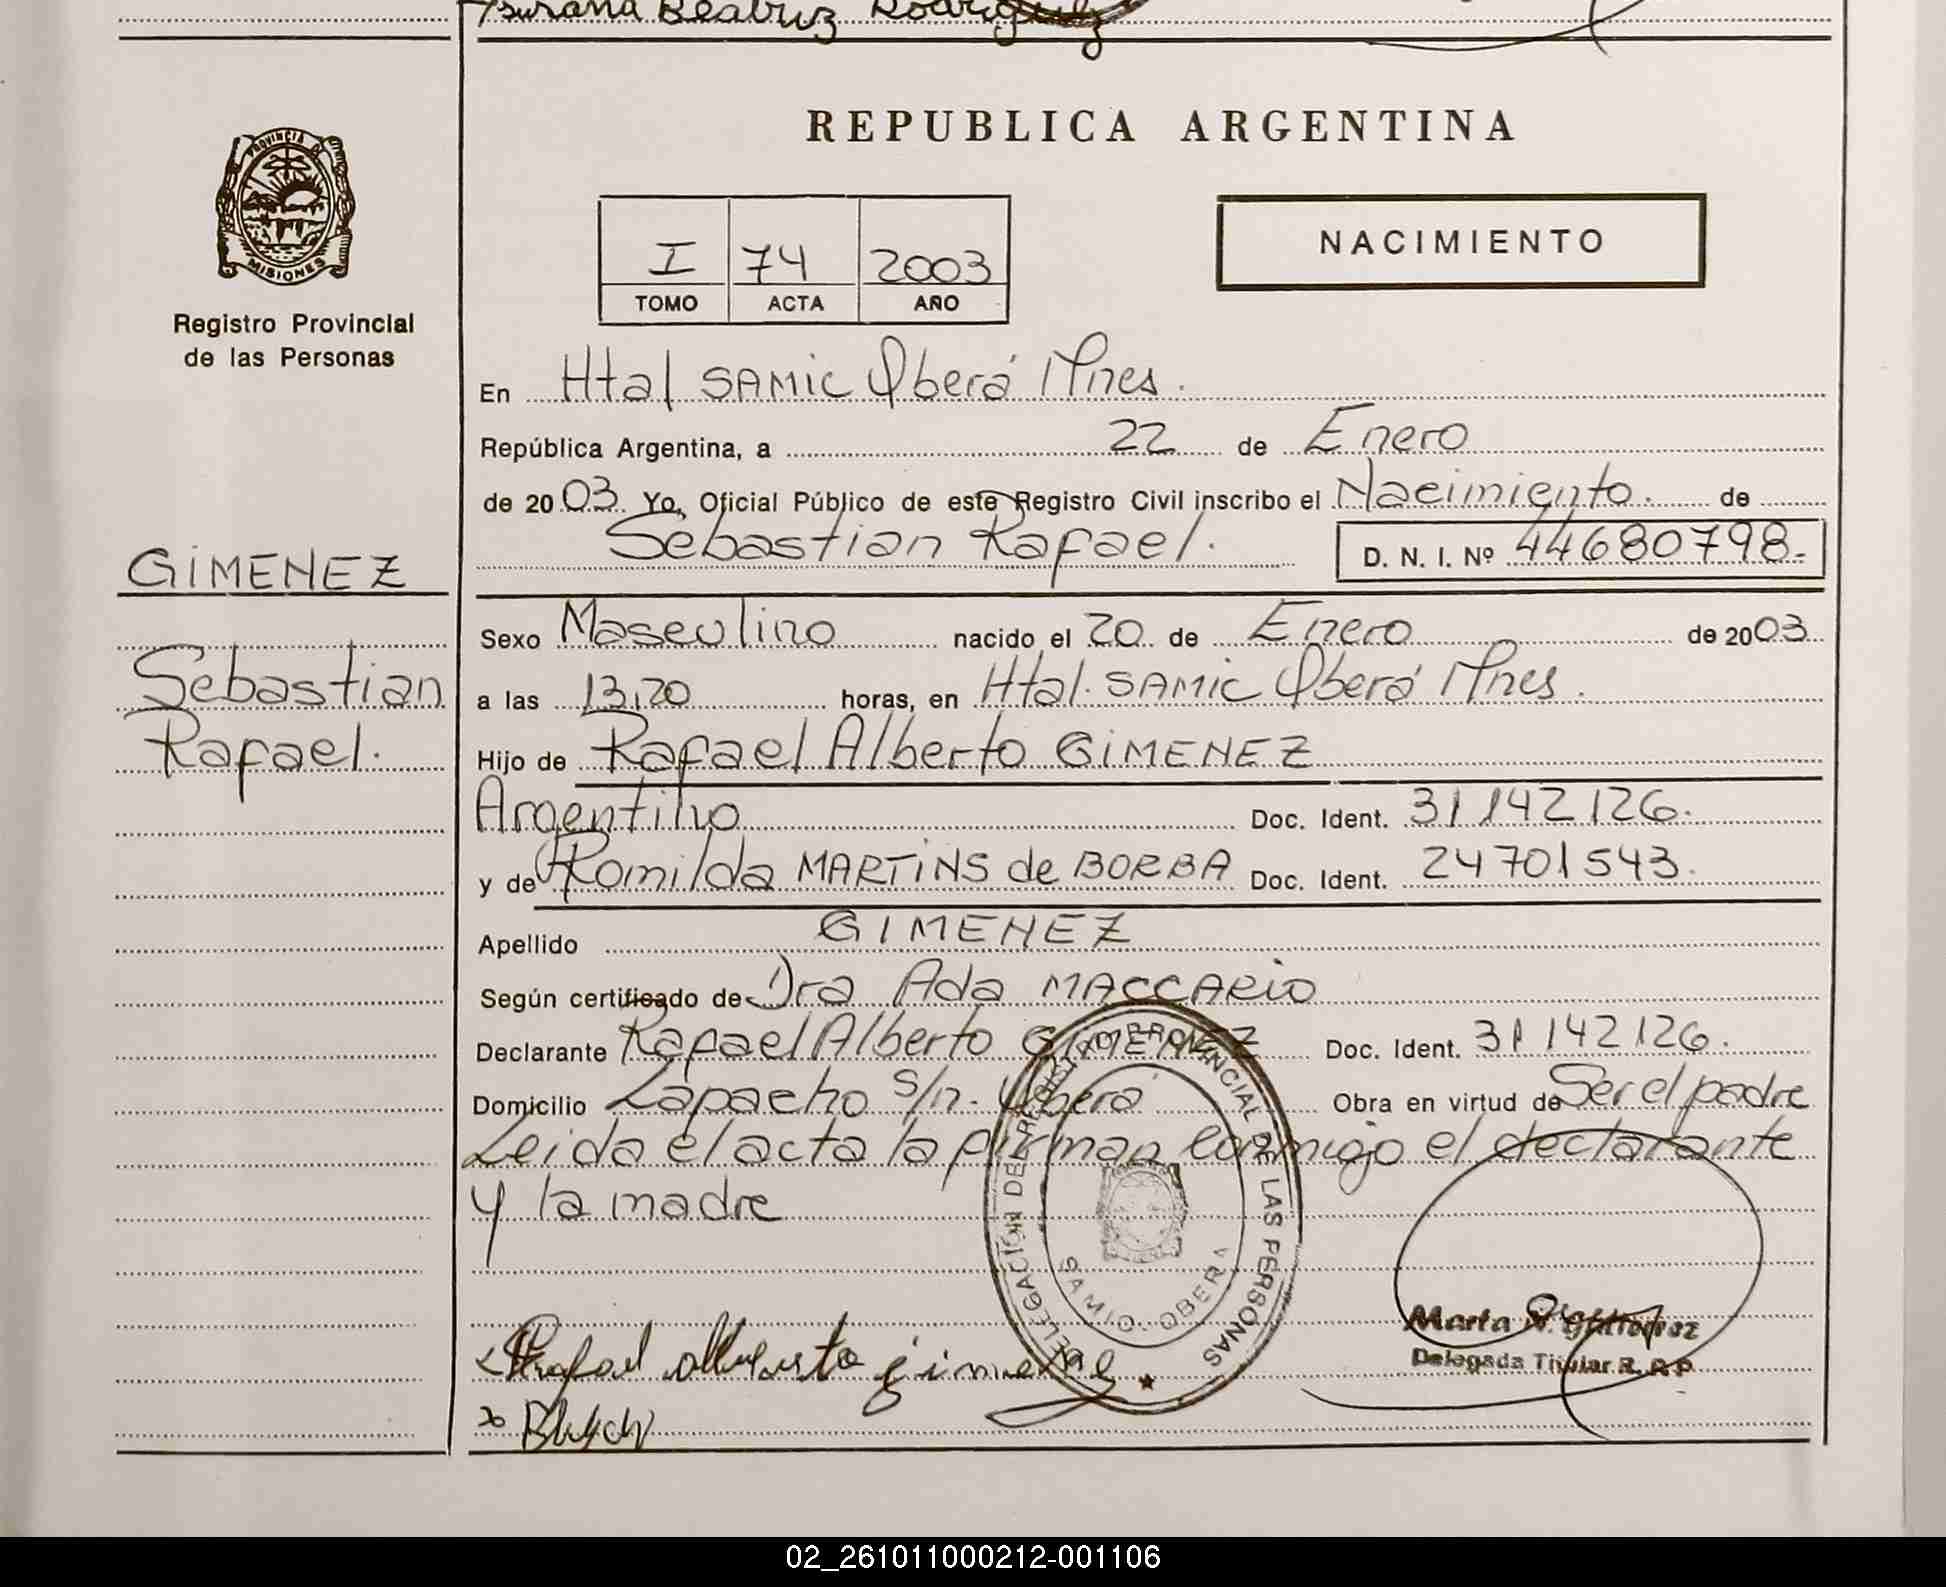 Susana Beatriz Rodriguez
REPUBLICA ARGENTINA
PROVINCIA DE
MISIONES
Registro Provincial
de las Personas
I 74 2003
TOMO ACTA AÑO
NACIMIENTO
En Htal SAMIC Oberá Mnes.
República Argentina, a 22 de Enero
de 2003 Yo, Oficial Público de este Registro Civil inscribo el Nacimiento. de
Sebastian Rafael. D. N. I. Nº 44680798-
GIMENEZ
Sebastian
Rafael.
Sexo Masculino nacido el 20 de Enero de 2003
a las 13,20 horas, en Htal. SAMIC Oberá Mnes.
Hijo de Rafael Alberto GIMENEZ
Argentino Doc. Ident. 31142126.
y de Romilda MARTINS de BORBA Doc. Ident. 24701543.
Apellido GIMENEZ
Según certificado de Dra Ada MACCARIO
Declarante Rafael Alberto GIMENEZ Doc. Ident. 31142126.
Domicilio Lapacho s/n. Oberá Obra en virtud de Ser el padre
Leida el acta la firman conmigo el declarante
y la madre
DELEGACIÓN DEL REGISTRO PROVINCIAL DE LAS PERSONAS
SAMIC. OBERA
Marta N. Gutierrez
Delegada Titular R. P. P.
Rafael Alberto gimenez
02_261011000212-001106